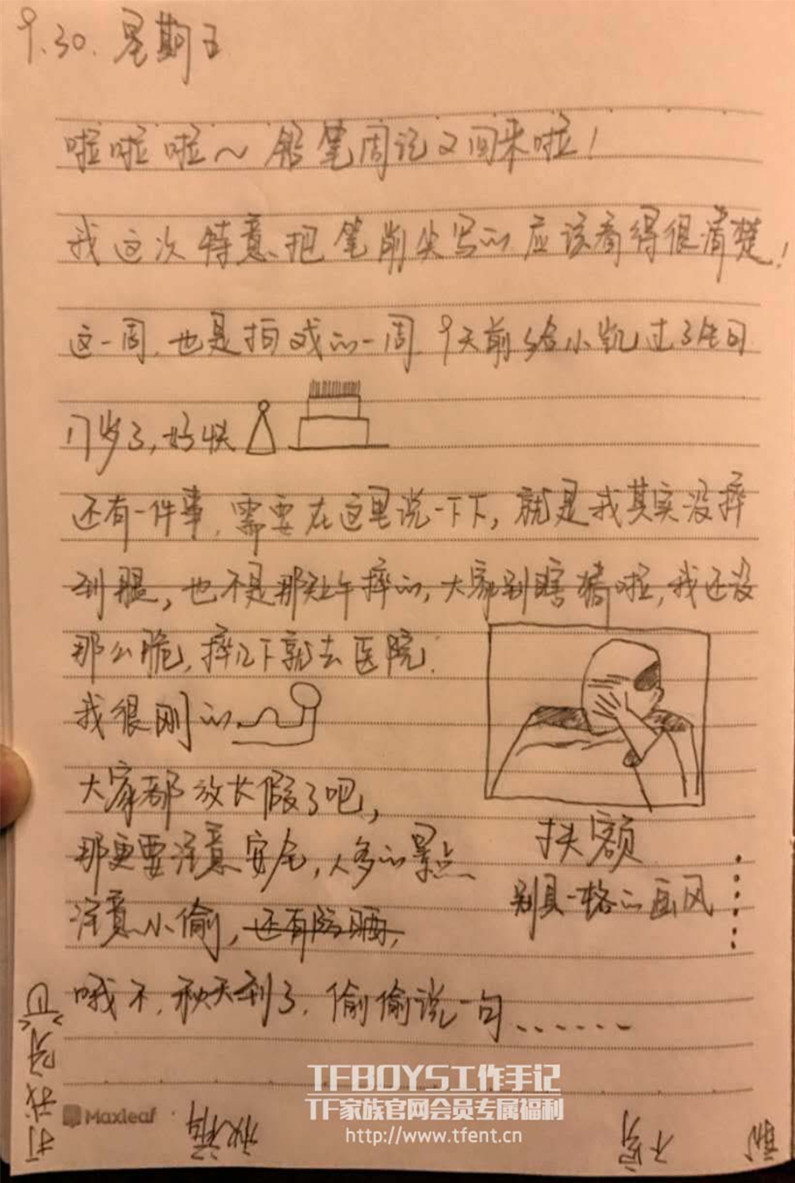 9.30. 星期五
啦啦啦~铅笔周记又回来啦!
我这次特意把笔削尖写的应该看得很清楚!
这一周,也是拍戏的一周,9天前给小凯过了生日
17岁了,好快
还有一件事,需要在这里说一下下,就是我其实没摔
到腿,也不是那处午摔的,大家别瞎猜啦,我还没
那么脆,摔几下就去医院.
我很刚的
大家都放长假了吧,
那更要注意安全,人多的景点
注意小偷,还有防晒,
哦不,秋天到了,偷偷说一句......
扶额
别具一格的画风
......
打我呀
秋裤
Maxleaf
TFBOYS工作手记
TF家族官网会员专属福利
http://www.tfent.cn